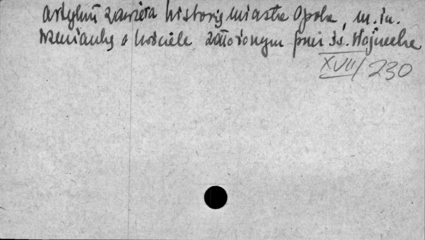 artykuł zawiera historię miasta Opola, m.in.
wzmiankę o kościele założonym przez św. Wojciecha
XVII/230